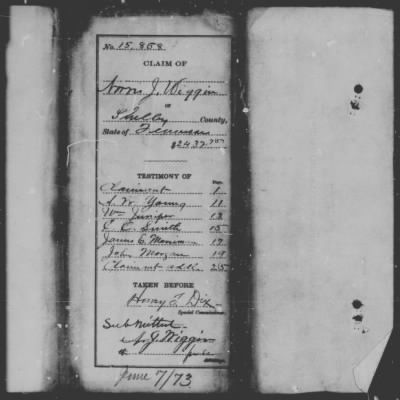 No. 15,808
CLAIM OF
J. Wiggin
OF
Shelby County,
State of Tennessee
$2432.
TESTIMONY OF
Page.
Claimant 1
A. W. Young 11
Wm Juniper 13
C. C. Smith 15
James C. 17
John Morgan 19
Claimant 25
TAKEN BEFORE
Henry T. Dix
Special Commissioner.
Submitted
J Wiggin
June 7/73